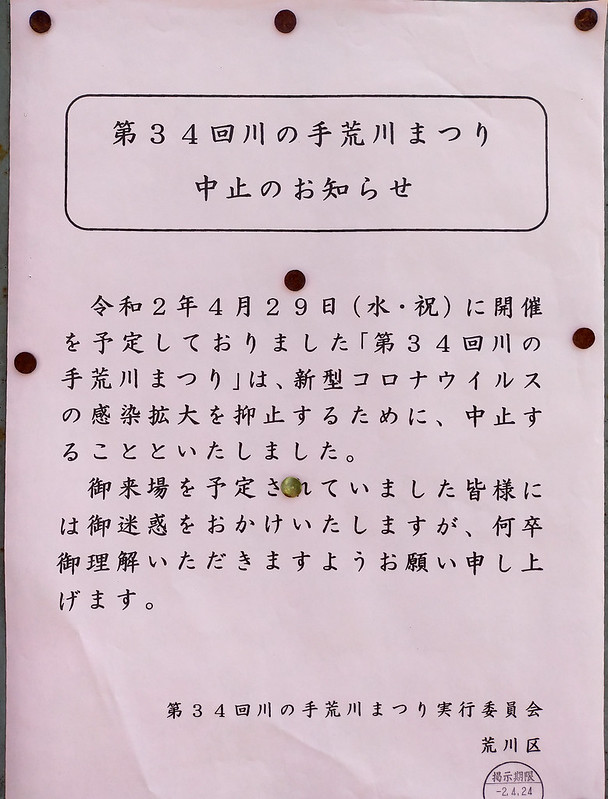 第３４回川の手荒川まつり
中止のお知らせ
令和２年４月２９日（水・祝）に開催
を予定しておりました「第３４回川の
手荒川まつり」は、新型コロナウイルス
の感染拡大を抑止するために、中止す
ることといたしました。
御来場を予定されていました皆様に
は御迷惑をおかけいたしますが、何卒
御理解いただきますようお願い申し上
げます。
第３４回川の手荒川まつり実行委員会
荒川区
掲示期限
-2.4.24